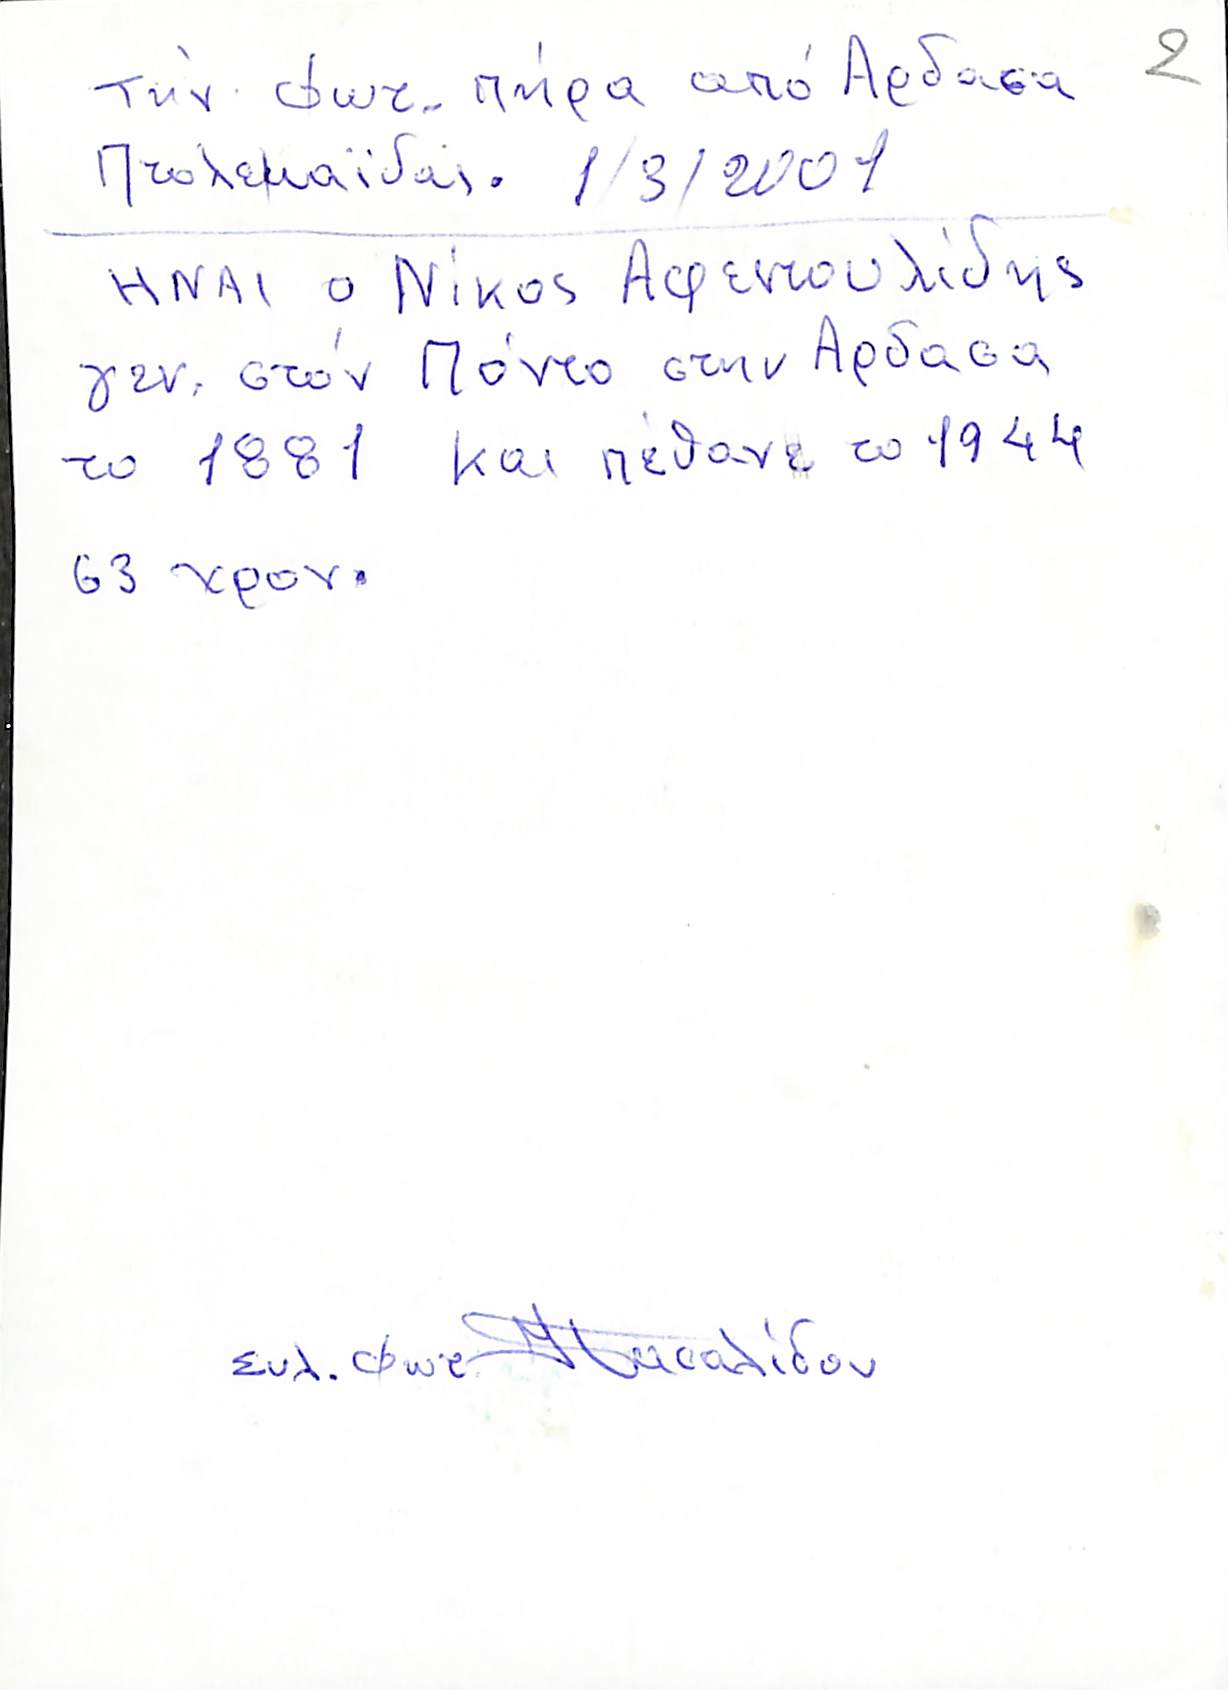 2
Την φωτ. πήρα από Αρδασα
Πτολεμαϊδας. 1/3/2001
ΗΝΑΙ ο Νίκος Αφεντουλίδης
γεν. στόν Πόντο στην Αρδασα
το 1881 και πέθανε το 1944
63 χρον.
Συλ. Φωτ.